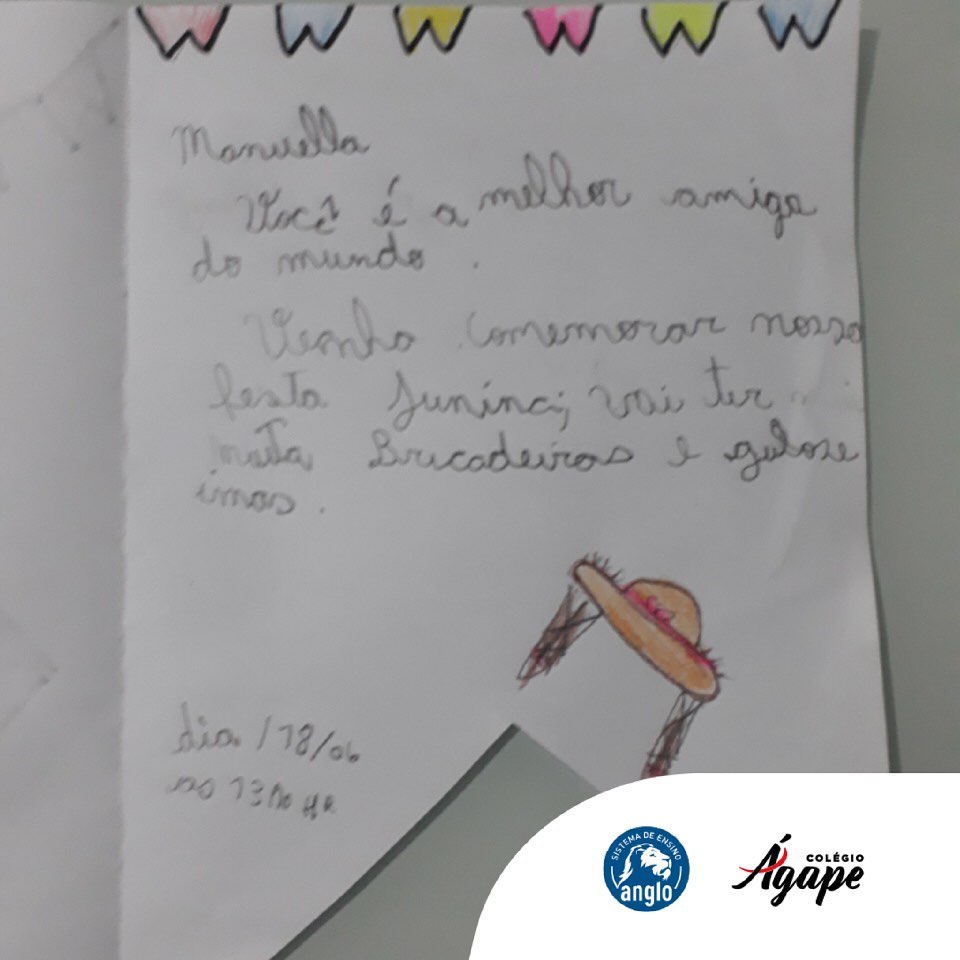 Manuella
Você é a melhor amiga
do mundo.
Venha comemorar nossa
festa Junina; vai ter
muita Bricadeiras e gulose
imas.
dia /18/06
as 13
SISTEMA DE ENSINO
anglo
COLÉGIO
Ágape